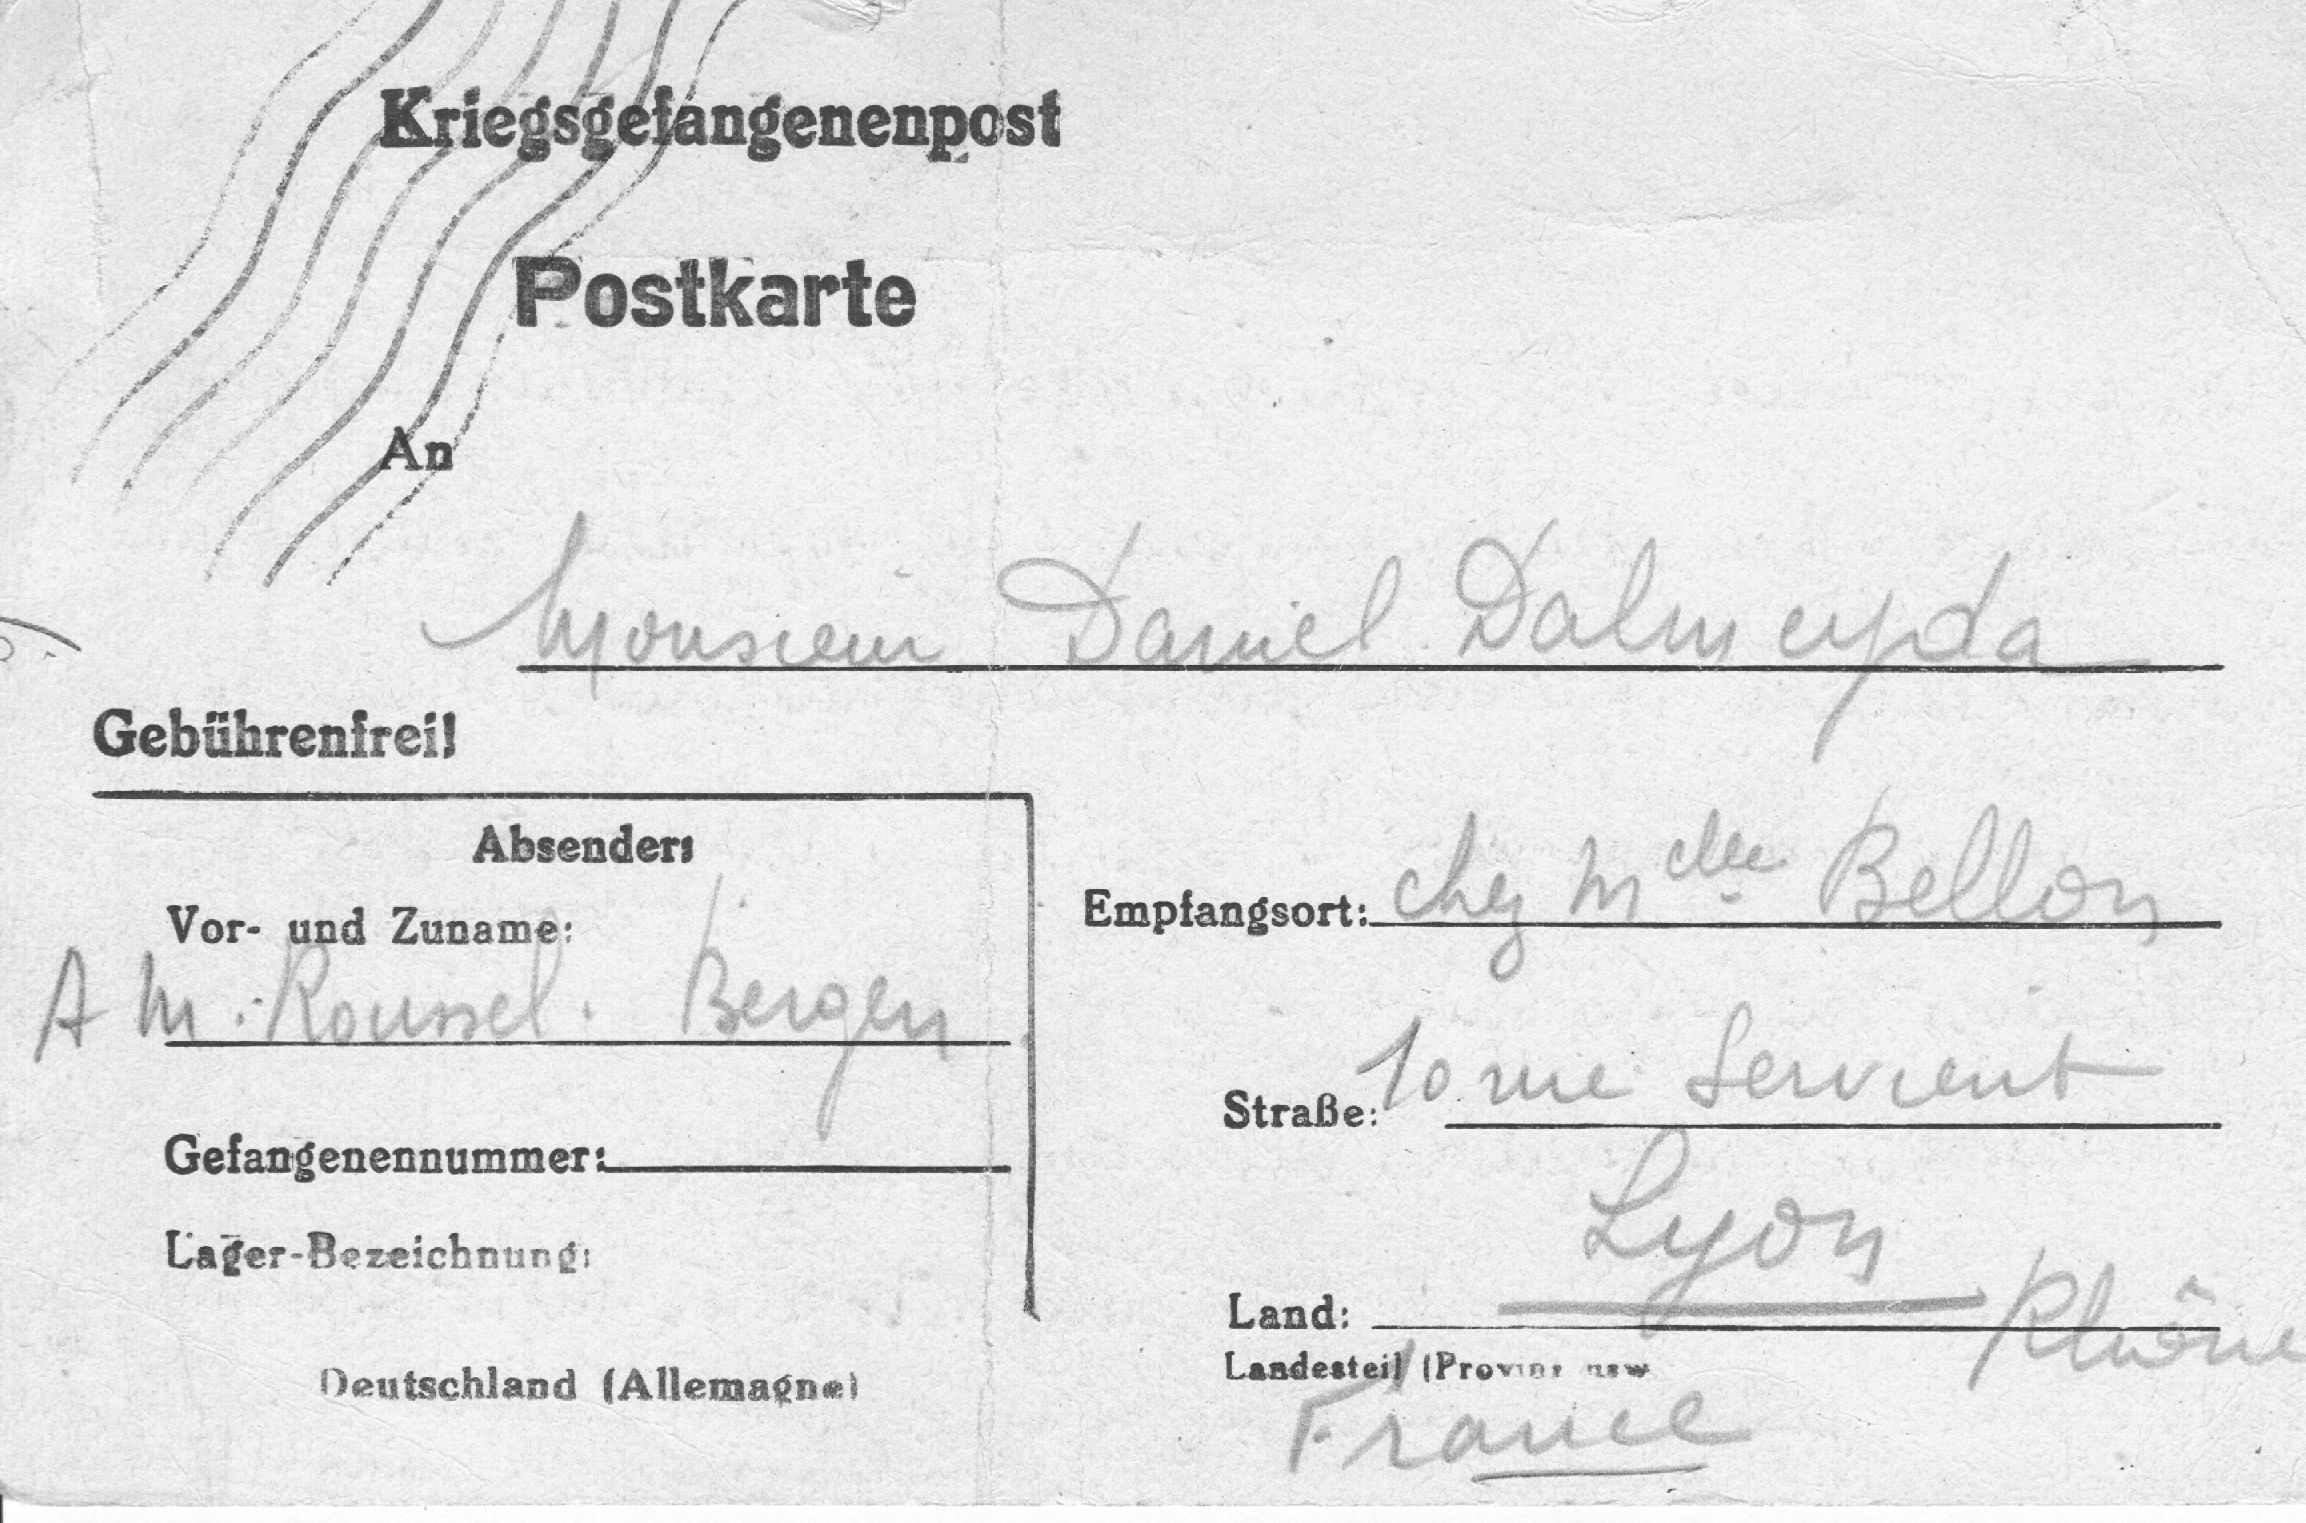 Kriegsgefangenenpost
Postkarte
An
Monsieur Daniel Dalmeyda
Gebührenfrei!
Absender:
Vor- und Zuname:
A M. Roussel. Bergen
Gefangenennummer:
Lager-Bezeichnung:
Deutschland (Allemagne)
Empfangsort: chez Melle Bellon
Straße: 10 rue Servient
Lyon
Land: Rhône
Landesteil (Provinz usw
France